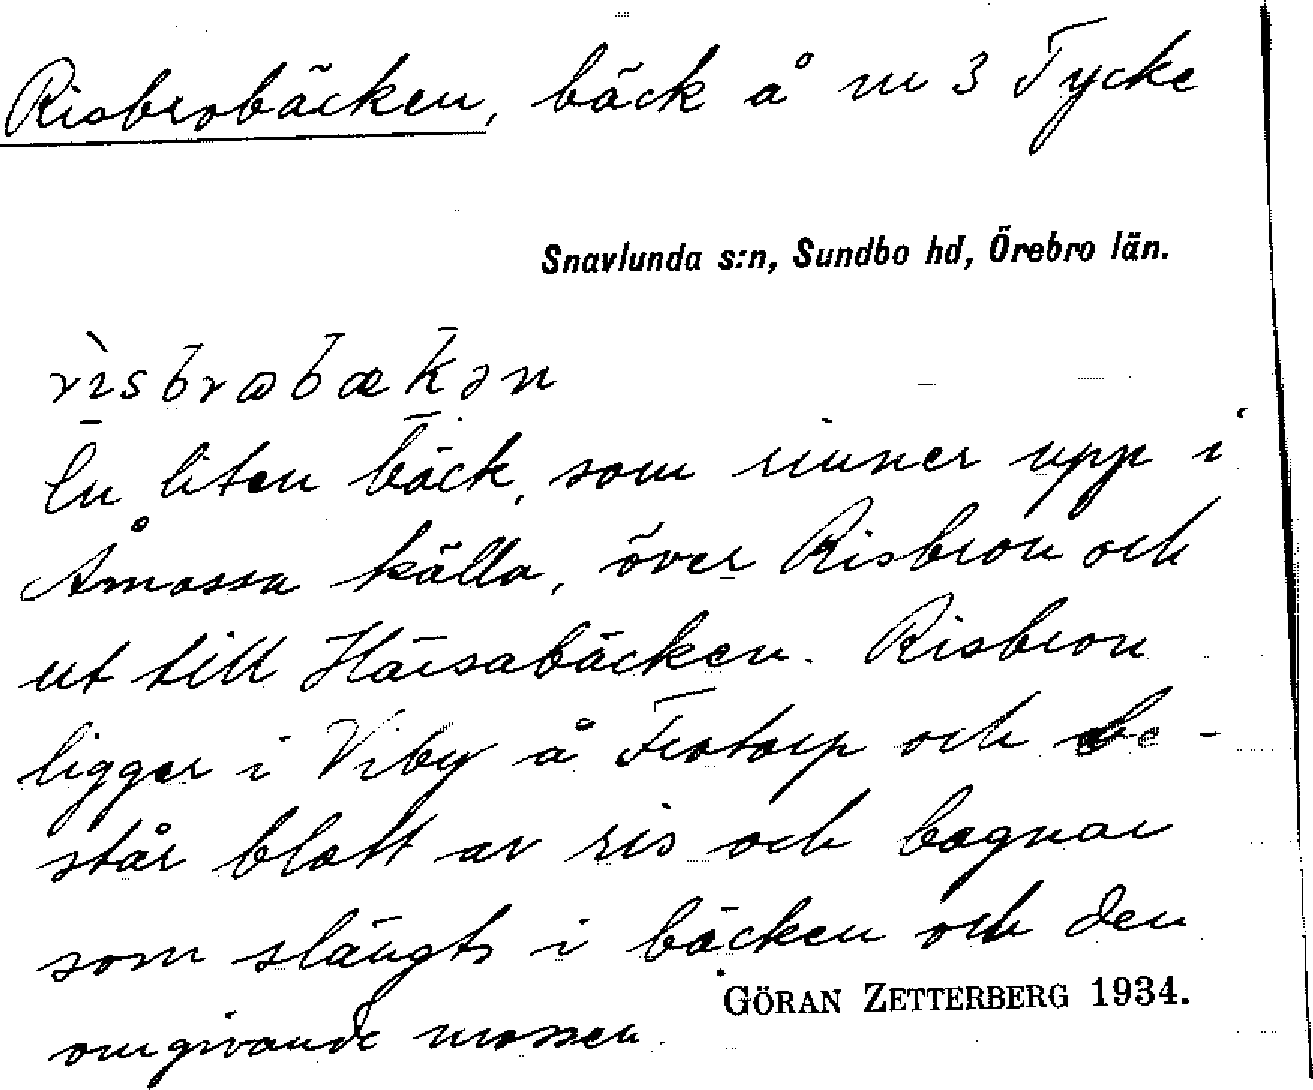 Risbrobäcken, bäck å nr 3 Tycke
Snavlunda s:n, Sundbo hd, Örebro län.
rìsbrobækən
En liten bäck, som rinner upp i
Åmossa källa, över Risbron och
ut till Härsabäcken. Risbron
ligger i Viby å Frotorp och be-
står blott av ris och bagnar
som slängts i bäcken och den
omgivande mossen.
GÖRAN ZETTERBERG 1934.